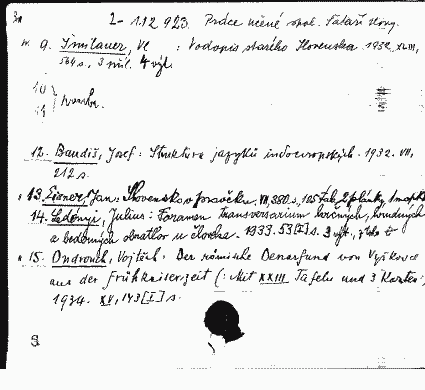 2- 112 923. Práce učené spol. Šafaříkovy.
9. Šmilauer, Vl : Vodopis starého Slovenska. 1932. XLIII,
564 s., 3 příl. 4 výt.
10
11 } vazba.
12. Baudiš, Josef: Struktura jazyků indoevropských. 1932. VII,
212 s.
13. Eisner, Jan: Slovensko v pravěku. VII, 380 s., 105 tab., 2 plánky, 1 mapka
14. Ledényi, Július: Foramen transversarium krčných, hrudných
a bederných obratlov u človeka. 1933. 53 [I] s. 3 výt.
15. Ondrouch, Vojtěch: Der römische Denarfund von Vyškovce
aus der Frühkaiserzeit (: Mit XXIII Tafeln und 3 Karten:)
1934. XV, 143 [I] s.